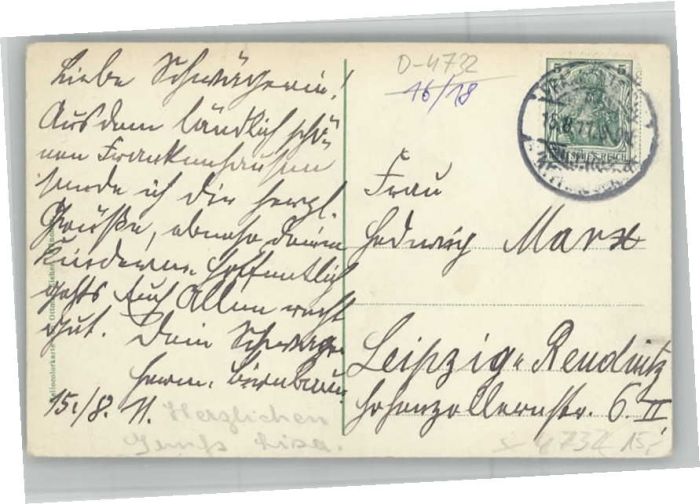 Liebe Schwägerin!
Aus dem ländlich schö-
nen Frankenhausen
sende ich die herzl.
Grüße, ebenso Deinen
Kindern. Hoffentlich
gehts Euch Allen recht
gut. Dein Schwager
Herm. Birnbaum
15./8. 11.
Herzlichen
Gruß Lisa.
D-4732
16/18
5
DEUTSCHES REICH
15.8.11.
Frau
Hedwig Marx
Leipzig-Reudnitz
Hohenzollernstr. 6. II.